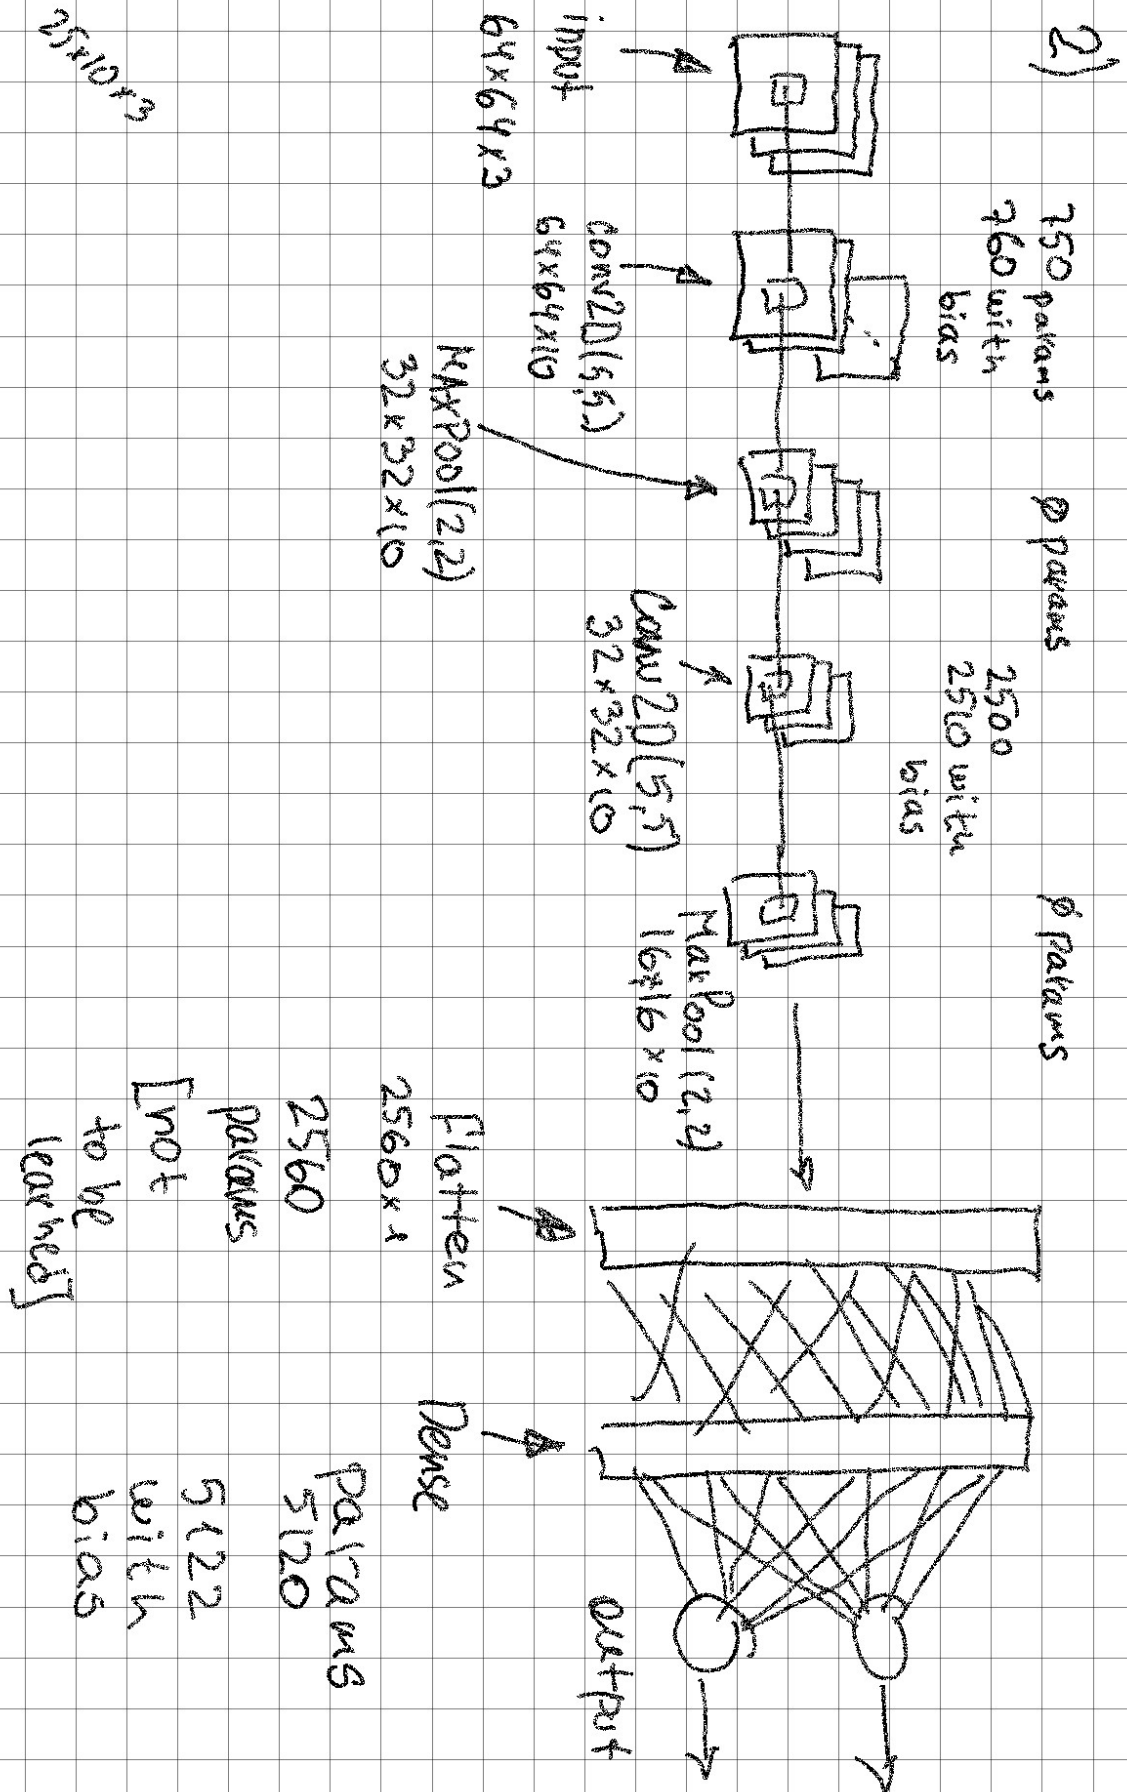 2)
750 params
760 with
bias
ø params
2500
2510 with
bias
ø params
input
64x64x3
conv2D(5,5)
64x64x10
MAxPool(2,2)
32x32x10
Conv2D(5,5)
32x32x10
MaxPool(2,2)
16x16x10
Flatten
2560x1
2560
params
[not
to be
learned]
Dense
params
5120
5122
with
bias
output
25x10+3